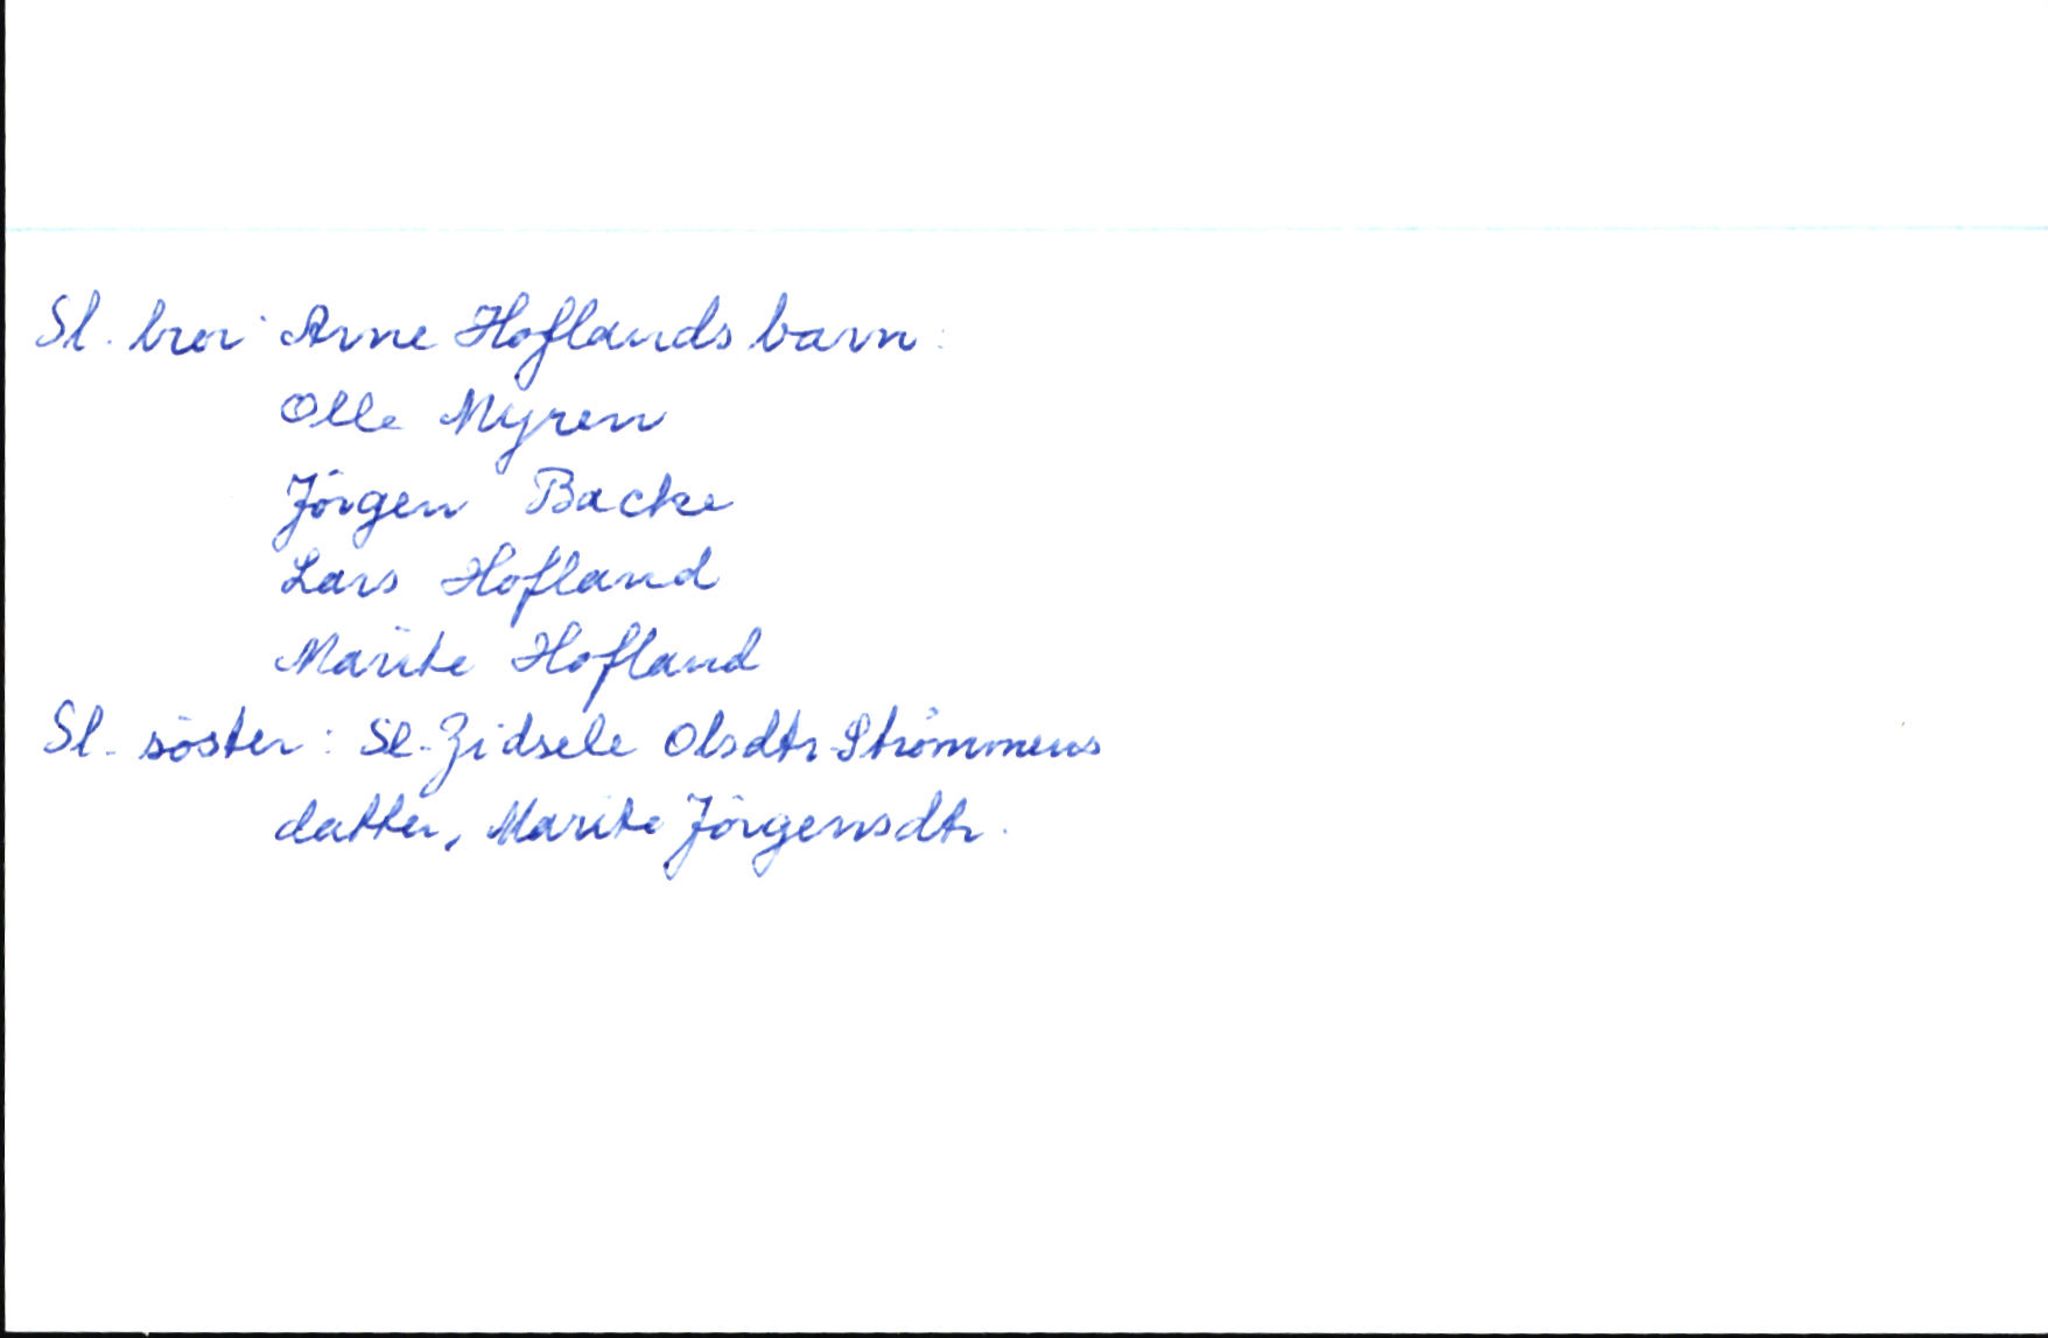 Sl. bror Arne Hoflands barn:
Olle Myren
Jörgen Backe
Lars Hofland
Marite Hofland
Sl. söster: Sl. Zidsele Olsdtr Strömmens
datter, Marite Jörgensdtr.